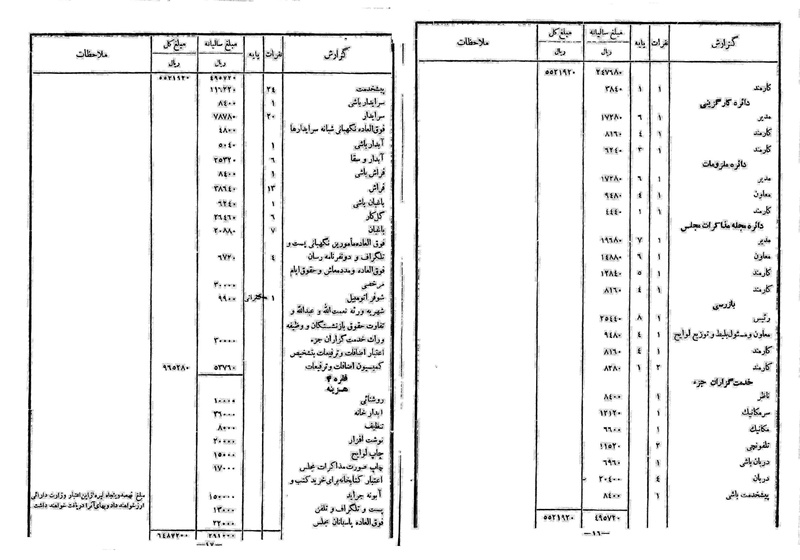 گزارش نفرات پایه مبلغ سالیانه ریال مبلغ کل ریال ملاحظات
۲۴۷۶۸۰ ۵۵۲۱۹۲۰
کارمند ۱ ۱ ۳۸۴۰
دائره کارگزینی
مدیر ۱ ۶ ۱۷۲۸۰
کارمند ۱ ۴ ۸۱۶۰
کارمند ۱ ۳ ۶۲۴۰
دائره ملزومات
مدیر ۱ ۶ ۱۷۲۸۰
معاون ۱ ۴ ۹۴۸۰
کارمند ۱ ۱ ۴۴۴۰
دائره مجله مذاکرات مجلس
مدیر ۱ ۷ ۱۹۶۸۰
معاون ۱ ۶ ۱۴۸۸۰
کارمند ۱ ۵ ۱۲۸۴۰
کارمند ۱ ۴ ۸۱۶۰
بازرسی
رئیس ۱ ۸ ۲۵۴۴۰
معاون و مسئول بلیط و توزیع لوایح ۱ ۴ ۹۴۸۰
کارمند ۱ ۴ ۸۱۶۰
کارمند ۲ ۱ ۸۲۸۰
خدمت‌گزاران جزء
ناظر ۱ ۸۴۰۰
سرمکانیک ۱ ۱۲۱۲۰
مکانیک ۱ ۶۶۰۰
تلفونچی ۲ ۱۱۵۲۰
دربان باشی ۱ ۶۹۶۰
دربان ۴ ۲۰۴۰۰
پیشخدمت باشی ۱ ۸۴۰۰
۴۹۵۷۲۰ ۵۵۲۱۹۲۰
—۱۶—
گزارش نفرات پایه مبلغ سالیانه ریال مبلغ کل ریال ملاحظات
۴۹۵۷۲۰ ۵۵۲۱۹۲۰
پیشخدمت ۲۴ ۱۱۶۲۲۰
سرایدار باشی ۱ ۸۴۰۰
سرایدار ۲۰ ۷۸۷۸۰
فوق‌العاده نگهبانی شبانه سرایدارها ۴۸۰۰
آبدارباشی ۱ ۵۰۴۰
آبدار و سقا ۶ ۲۵۳۲۰
فراش باشی ۱ ۸۴۰۰
فراش ۱۳ ۳۸۶۴۰
باغبان باشی ۱ ۶۲۴۰
گل‌کار ۶ ۲۶۴۶۰
باغبان ۷ ۲۰۸۸۰
فوق العاده مأمورین نگهبانی پست و
تلگراف و دو نفر نامه رسان ۴ ۶۷۲۰
فوق‌العاده و مدد معاش و حقوق ایام
مرخصی ۳۰۰۰۰
شوفر اتومبیل ۱ ۹۹۰۰
شهریه ورثه نعمت‌الله و عبدالله و
تفاوت حقوق بازنشستگان و وظیفه
وراث خدمت گزاران جزء ۳۰۰۰۰
اعتبار اضافات و ترفیعات بتشخیص
کمیسیون اضافات و ترفیعات ۵۳۷۶۰ ۹۶۵۲۸۰
فقره ۴
هزینه
روشنائی ۱۰۰۰۰
آبدار خانه ۳۶۰۰۰
تنظیف ۸۰۰۰
نوشت افزار ۲۰۰۰۰
چاپ لوایح ۱۵۰۰۰
چاپ صورت مذاکرات مجلس ۱۷۰۰۰
اعتبار کتابخانه برای خرید کتب و
آبونه جراید ۱۵۰۰۰۰
پست و تلگراف و تلفن ۱۳۰۰۰
فوق‌العاده پاسبانان مجلس ۲۲۰۰۰
۲۹۱۰۰۰ ۶۴۸۷۲۰۰
—۱۷—